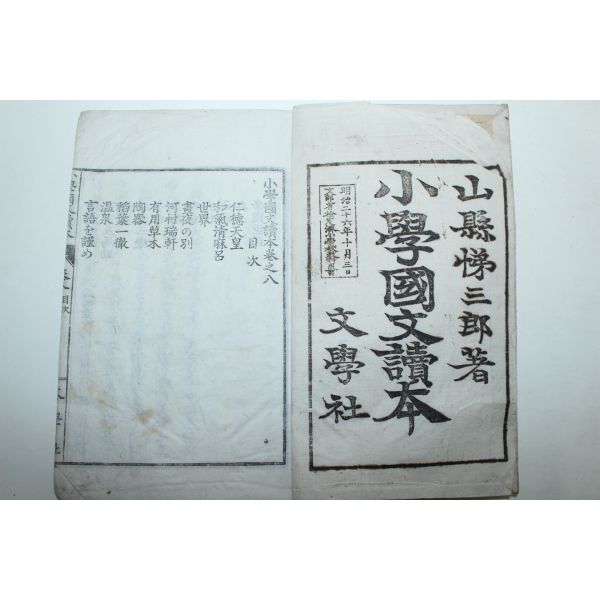 山縣悌三郎著
小學國文讀本
明治二十六年十月三日
文學社
小學國文讀本卷之八
目次
仁德天皇
和氣清麻呂
世界
晝夜の別
河村瑞軒
有用草木
陶器
稻葉一徹
溫泉
言語を謹め
目次